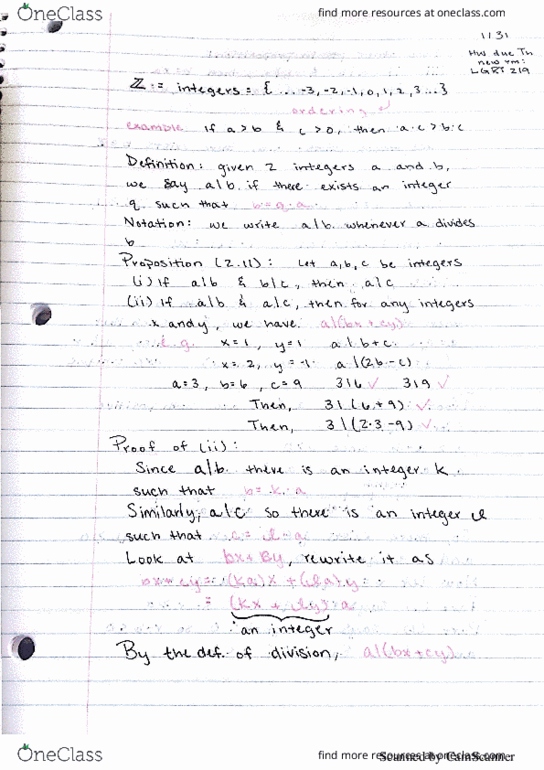 OneClass
find more resources at oneclass.com
1/31
HW due Th
new rm:
LGRT 219
ℤ := integers = { ... -3, -2, -1, 0, 1, 2, 3 ... }
ordering
example if a > b & c > 0, then a·c > b·c
Definition: given 2 integers a and b,
we say a|b if there exists an integer
q such that b = q·a
Notation: we write a|b whenever a divides
b
Proposition (2.11): Let a, b, c be integers
(i) If a|b & b|c, then a|c
(ii) If a|b & a|c, then for any integers
x and y, we have a|(bx+cy)
e.g. x=1, y=1 a|b+c
x=2, y=-1 a|(2b-c)
a=3, b=6, c=9 3|6 ✓ 3|9 ✓
Then, 3|(6+9) ✓
Then, 3|(2·3-9) ✓
Proof of (ii):
Since a|b there is an integer k
such that b = k·a
Similarly, a|c so there is an integer l
such that c = l·a
Look at bx + cy, rewrite it as
bx + cy = (ka)x + (la)y
= (kx + ly) a
an integer
By the def. of division, a|(bx+cy)
OneClass
find more resources at oneclass.com
Scanned by CamScanner